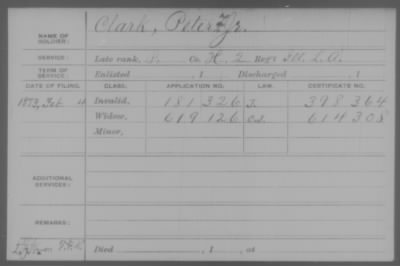 NAME OF SOLDIER: Clark, Peter Jr.
SERVICE: Late rank, Co. H, 2 Reg't Ill. L.A.
TERM OF SERVICE: Enlisted , 1 Discharged , 1
DATE OF FILING. CLASS. APPLICATION NO. LAW. CERTIFICATE NO.
1873, Feb Invalid, 181 326 398 364
Widow, 619 126 614 308
Minor,
ADDITIONAL SERVICES:
REMARKS:
Died , 1 , at